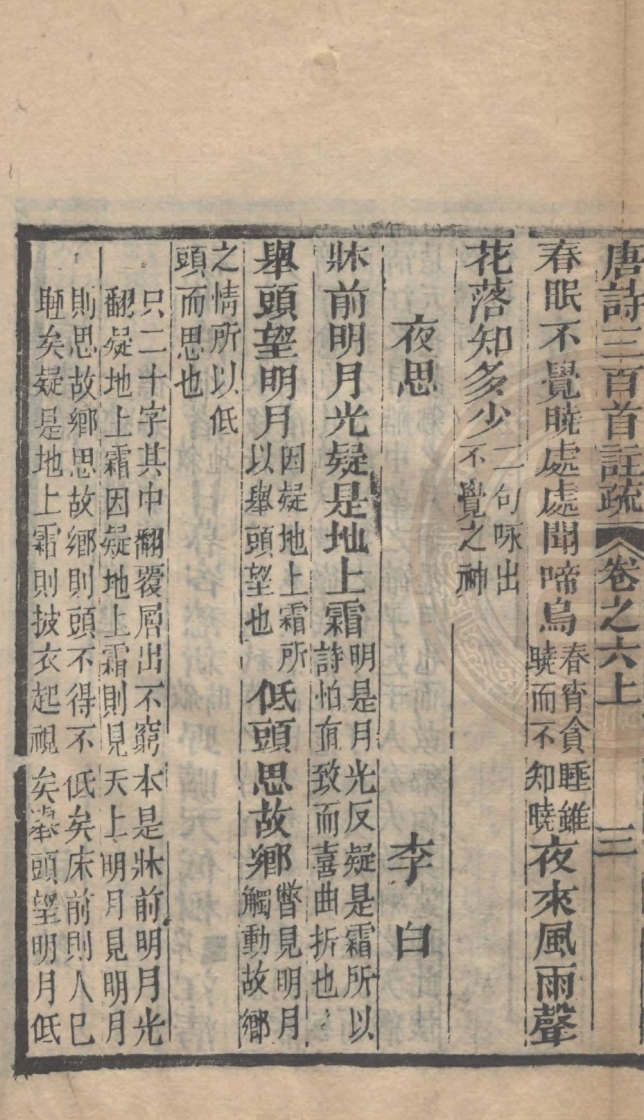 唐詩三百首註疏 卷之六上 三
春眠不覺曉處處聞啼鳥
春宵貪睡雖
曉而不知曉
夜來風雨聲
花落知多少
二句咏出
不覺之神
夜思 李白
牀前明月光疑是地上霜
明是月光反疑是霜所以
詩怕直致而喜曲折也
舉頭望明月
因疑地上霜所
以舉頭望也
低頭思故鄉
瞥見明月
觸動故鄉
之情所以低
頭而思也
只二十字其中翻覆層出不窮本是牀前明月光
翻疑地上霜因疑地上霜則見天上明月見明月
則思故鄉思故鄉則頭不得不低矣床前則人已
睡矣疑是地上霜則披衣起視矣舉頭望明月低